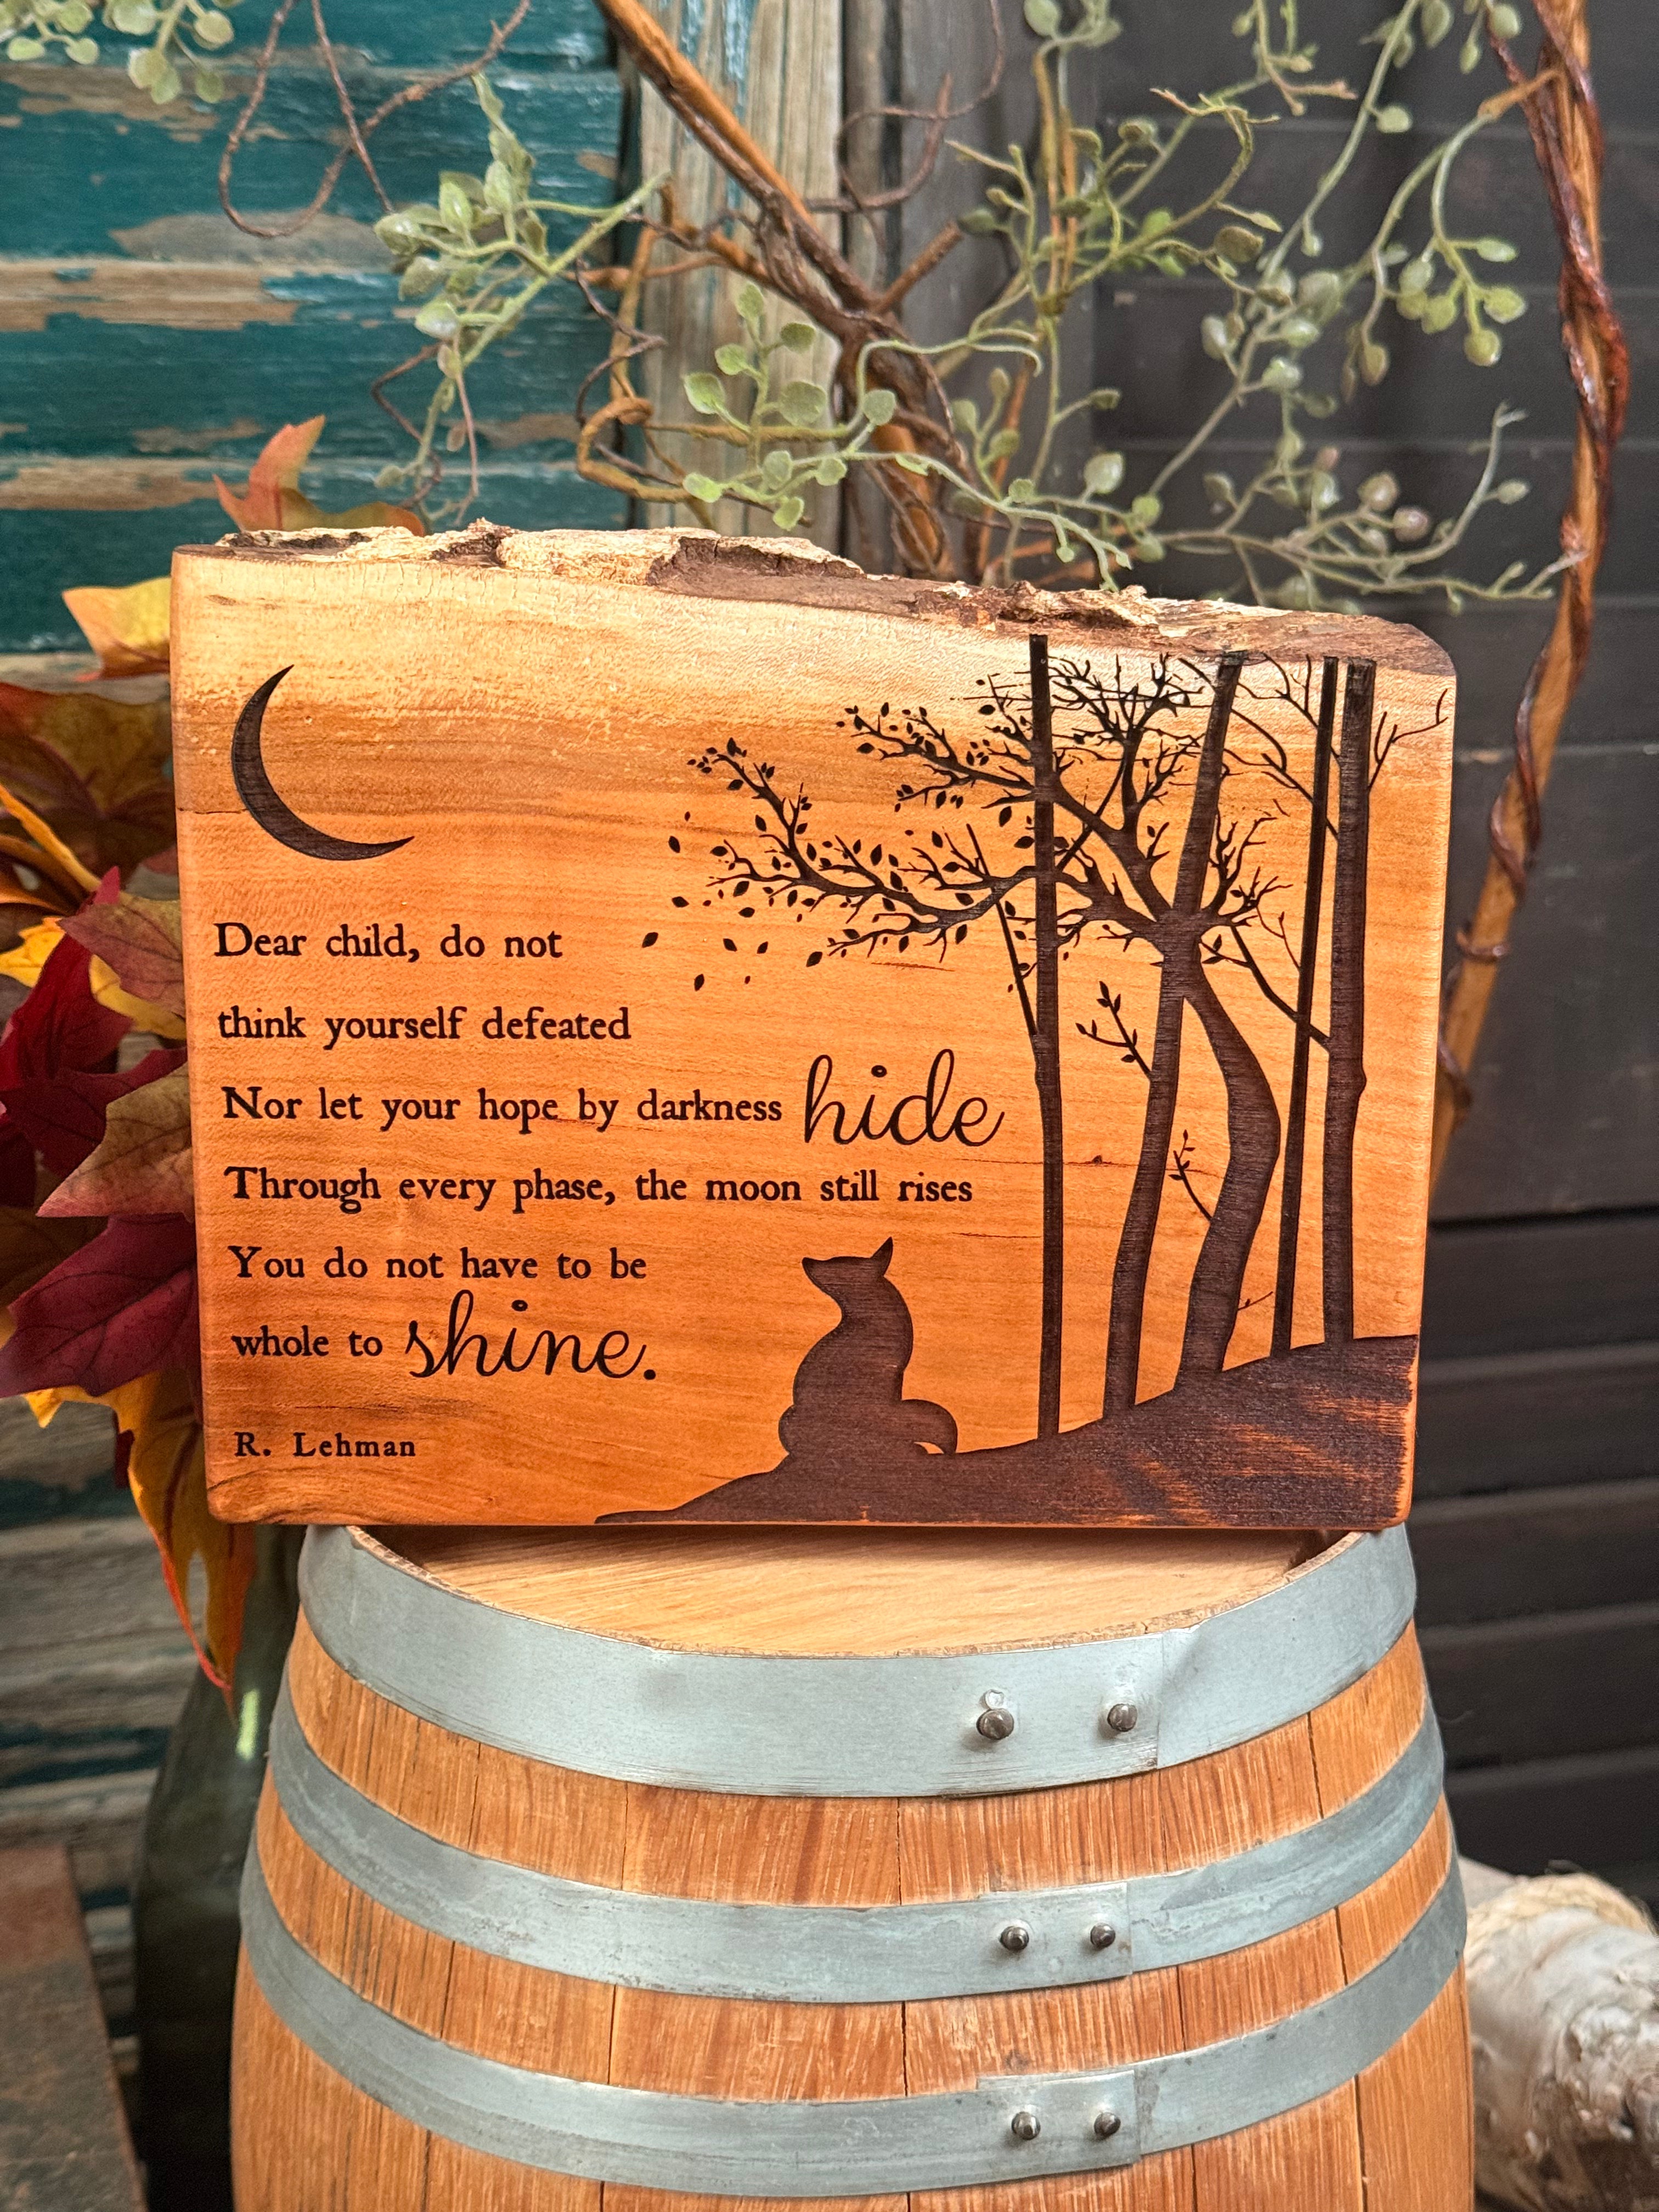 Dear child, do not
think yourself defeated
Nor let your hope by darkness hide
Through every phase, the moon still rises
You do not have to be
whole to shine.
R. Lehman